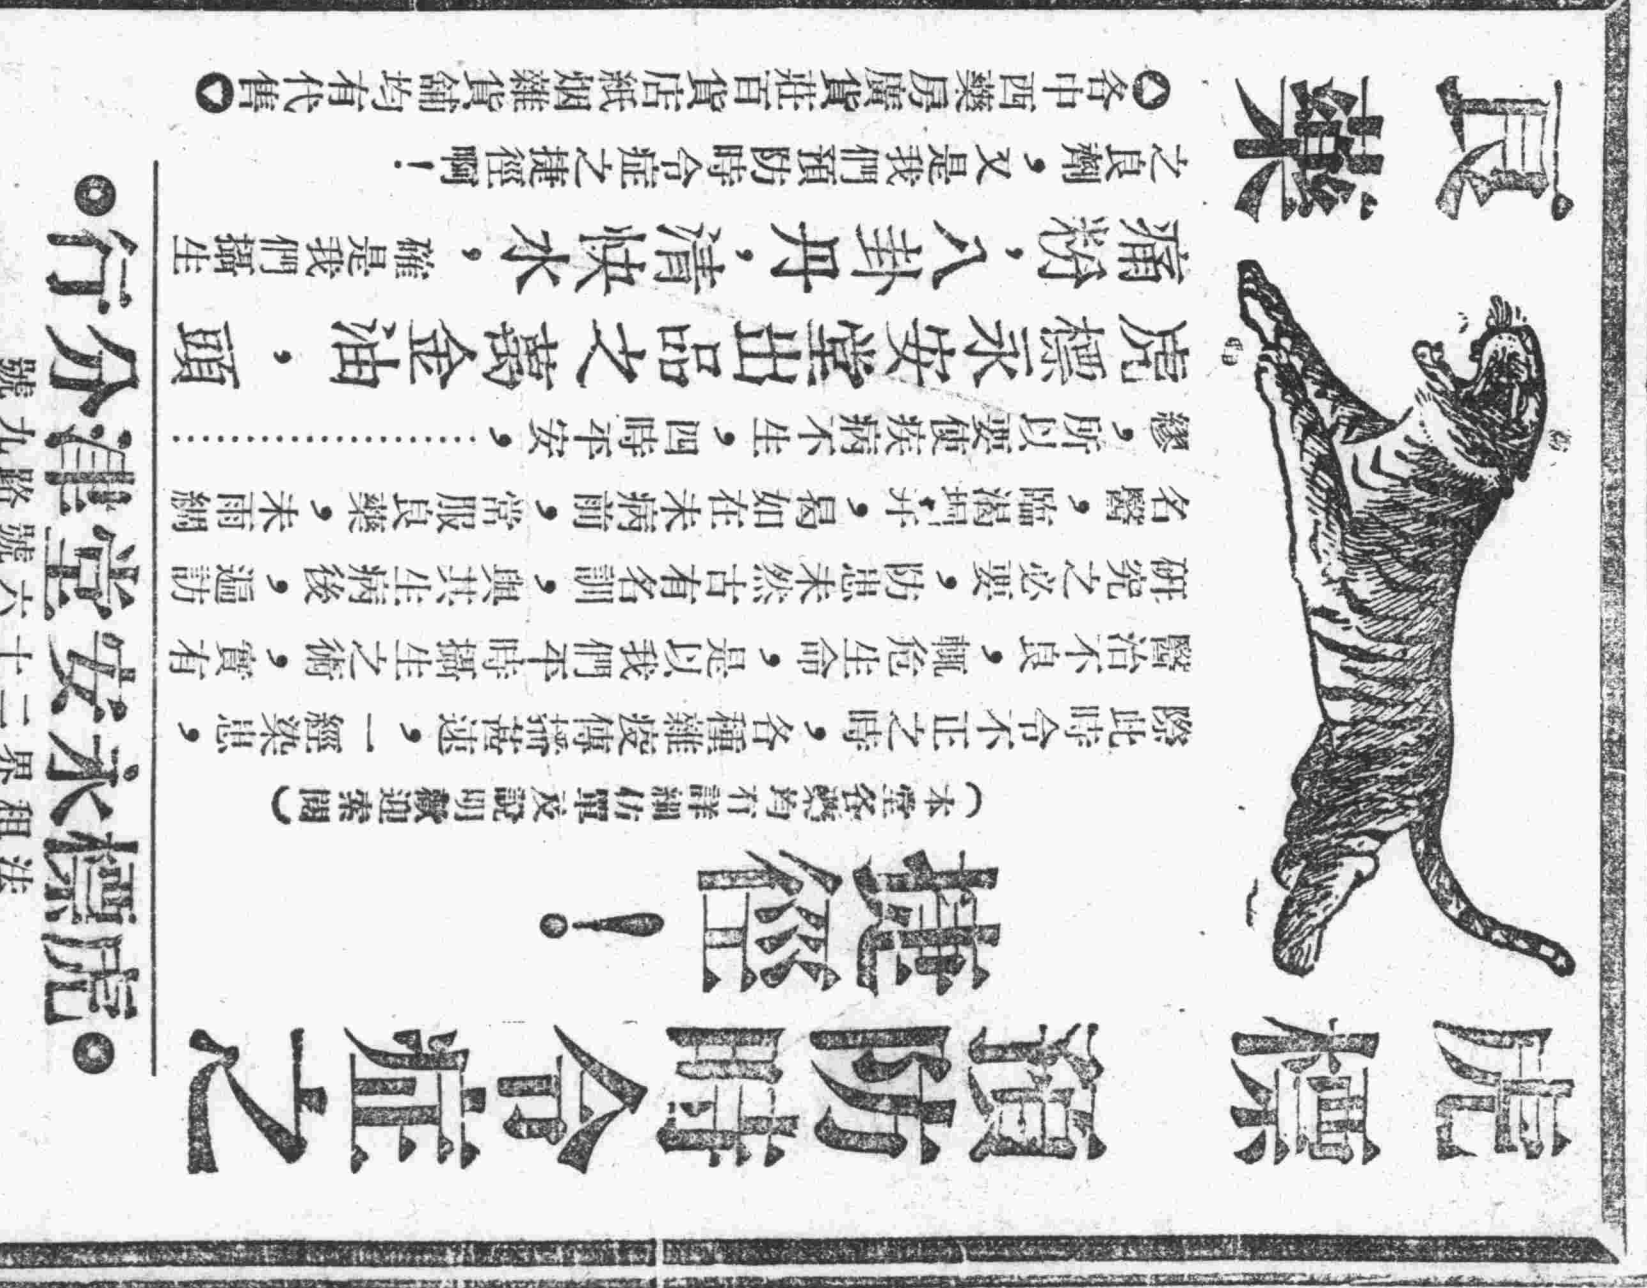 虎標
良藥
預防時令症之
捷徑!
(本堂各藥均有詳細仿單及說明歡迎索閱)
際此時令不正之時,各種雜疫傳播甚速,一經染患,
醫治不良,輒危生命,是以我們平時攝生之術,實有
研究之必要,防患未然古有名訓,與其生病後,遍訪
名醫,臨渴掘井,曷如在未病前,常服良藥,未雨綢
繆,所以要使疾病不生,四時平安,………………
虎標永安堂出品之萬金油,頭
痛粉,八卦丹,清快水,確是我們攝生
之良劑,又是我們預防時令症之捷徑啊!
各中西藥房廣貨莊百貨店紙烟雜貨舖均有代售
虎標永安堂津分行
法租界二十六號路九號